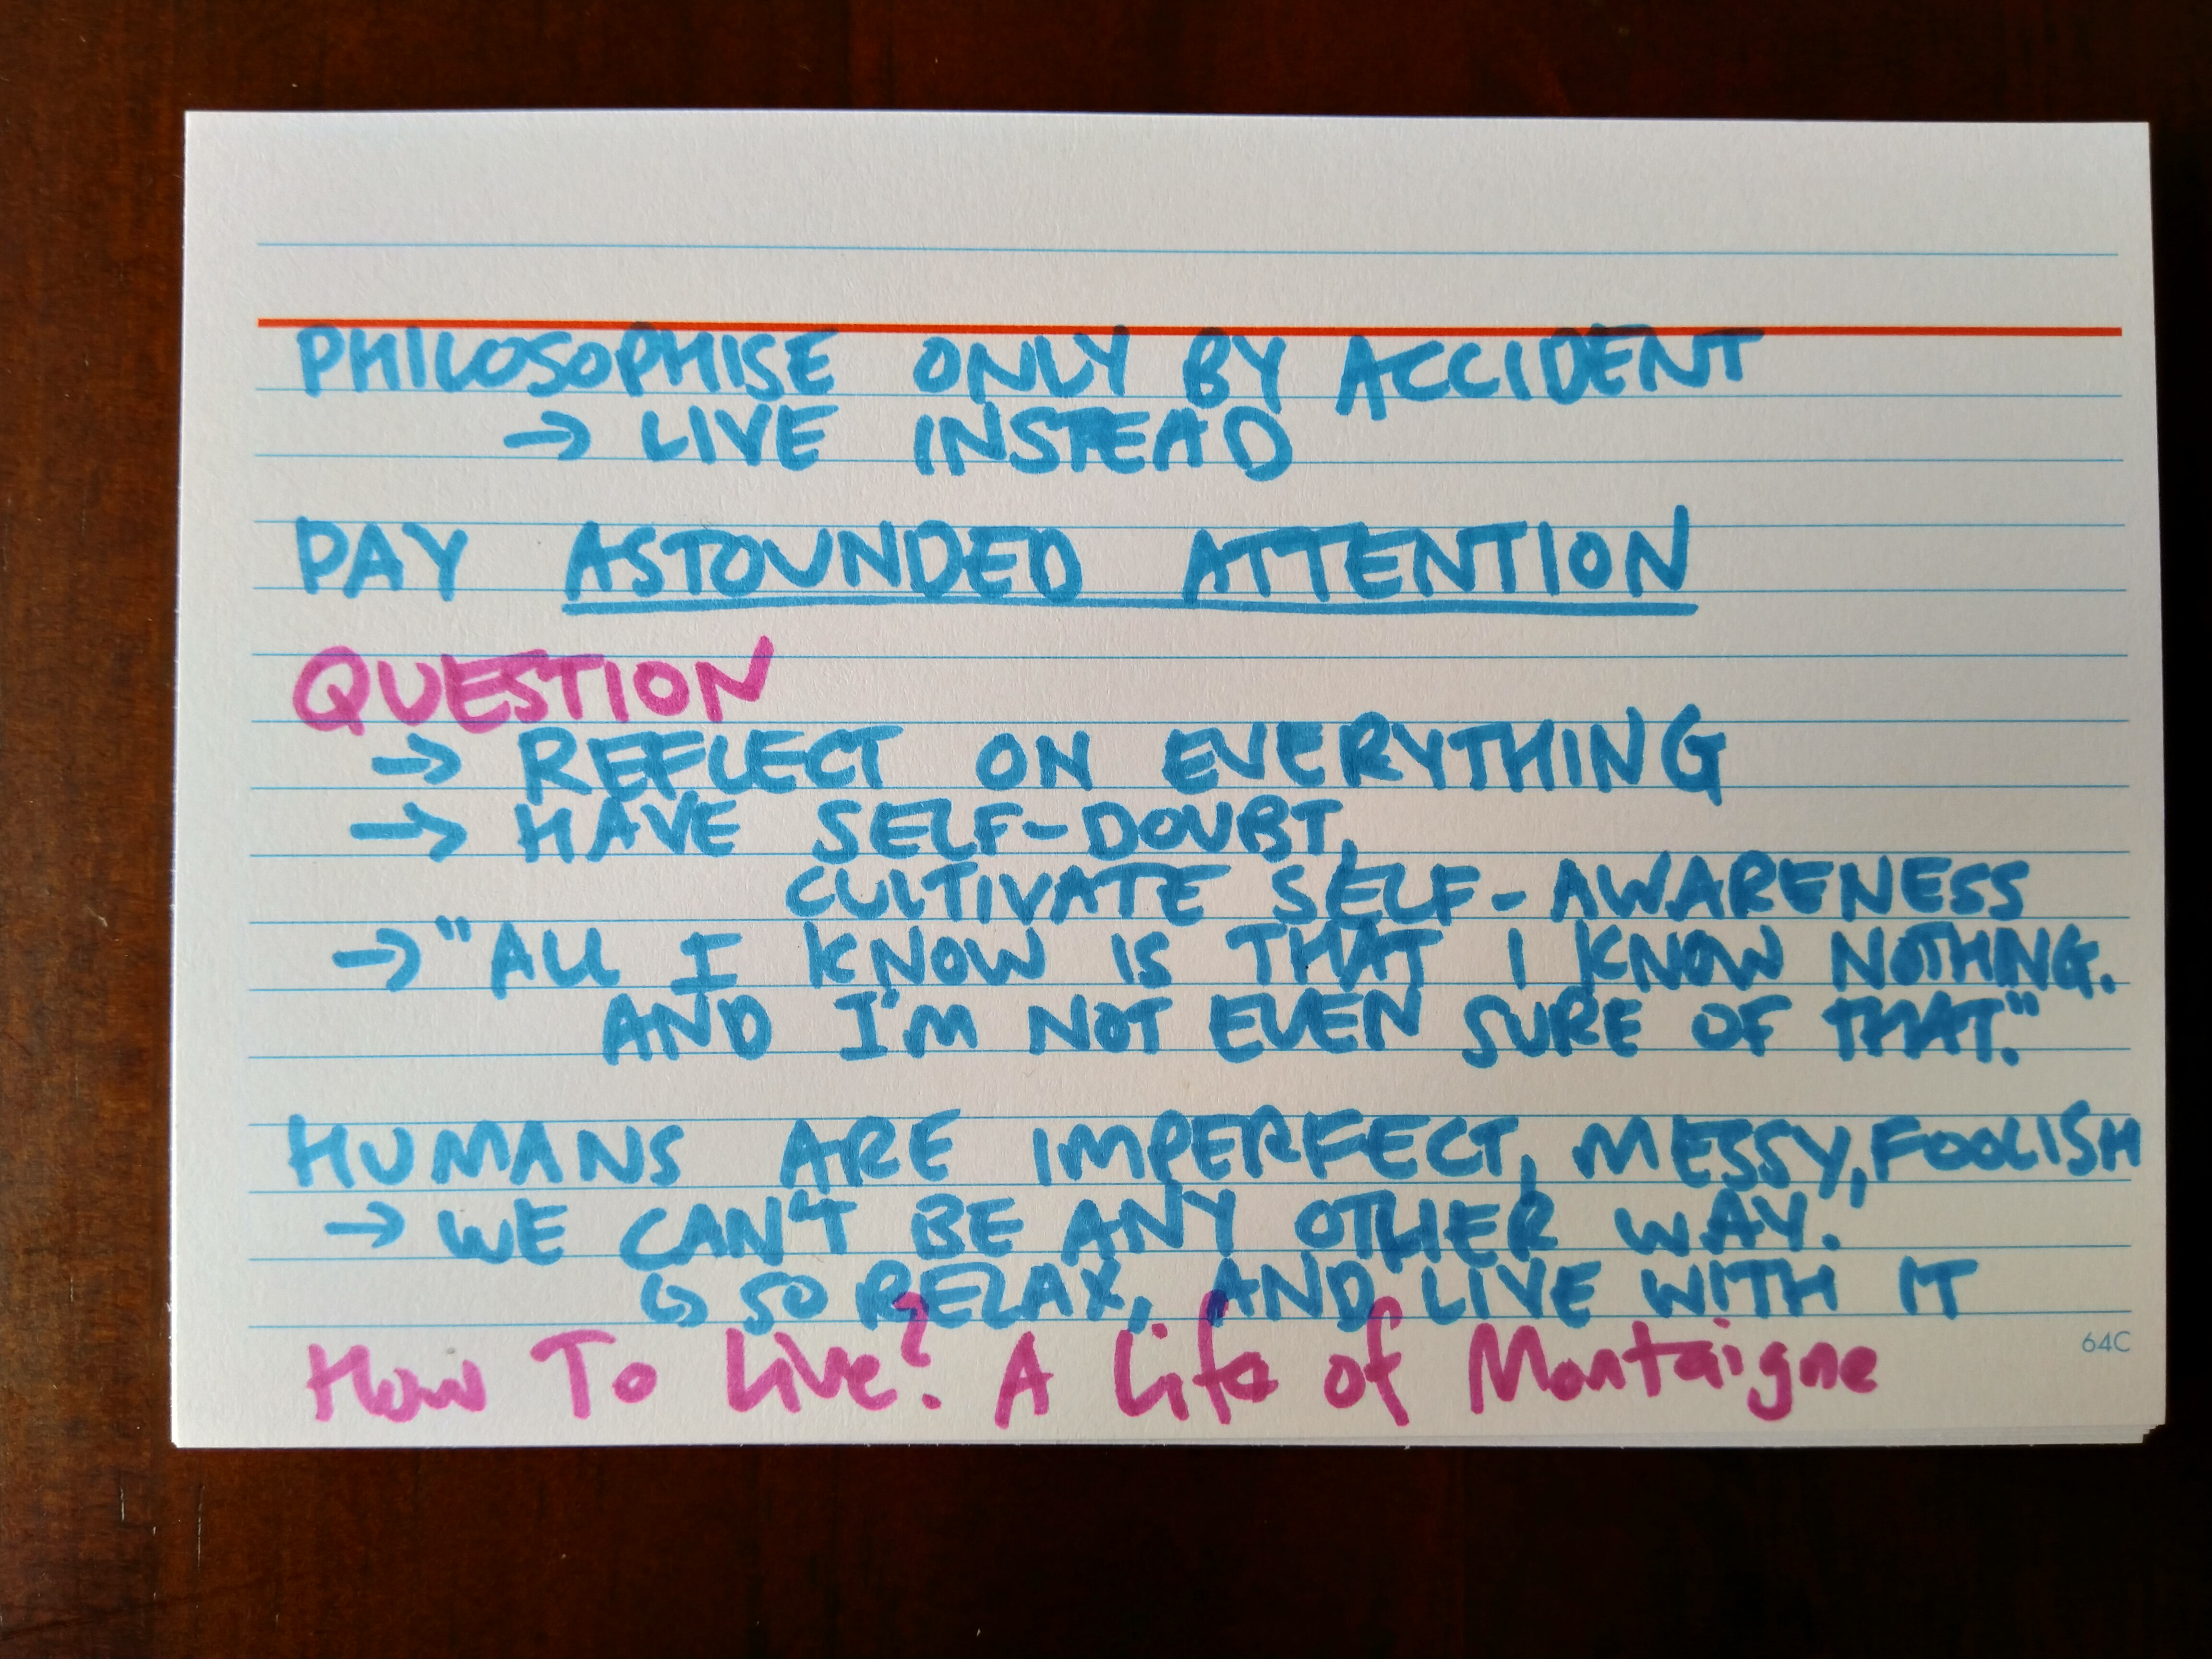 PHILOSOPHISE ONLY BY ACCIDENT
→ LIVE INSTEAD
PAY ASTOUNDED ATTENTION
QUESTION
→ REFLECT ON EVERYTHING
→ HAVE SELF-DOUBT,
CULTIVATE SELF-AWARENESS
→ "ALL I KNOW IS THAT I KNOW NOTHING.
AND I'M NOT EVEN SURE OF THAT."
HUMANS ARE IMPERFECT, MESSY, FOOLISH
→ WE CAN'T BE ANY OTHER WAY.
↳ SO RELAX, AND LIVE WITH IT
64C
How To Live? A Life of Montaigne